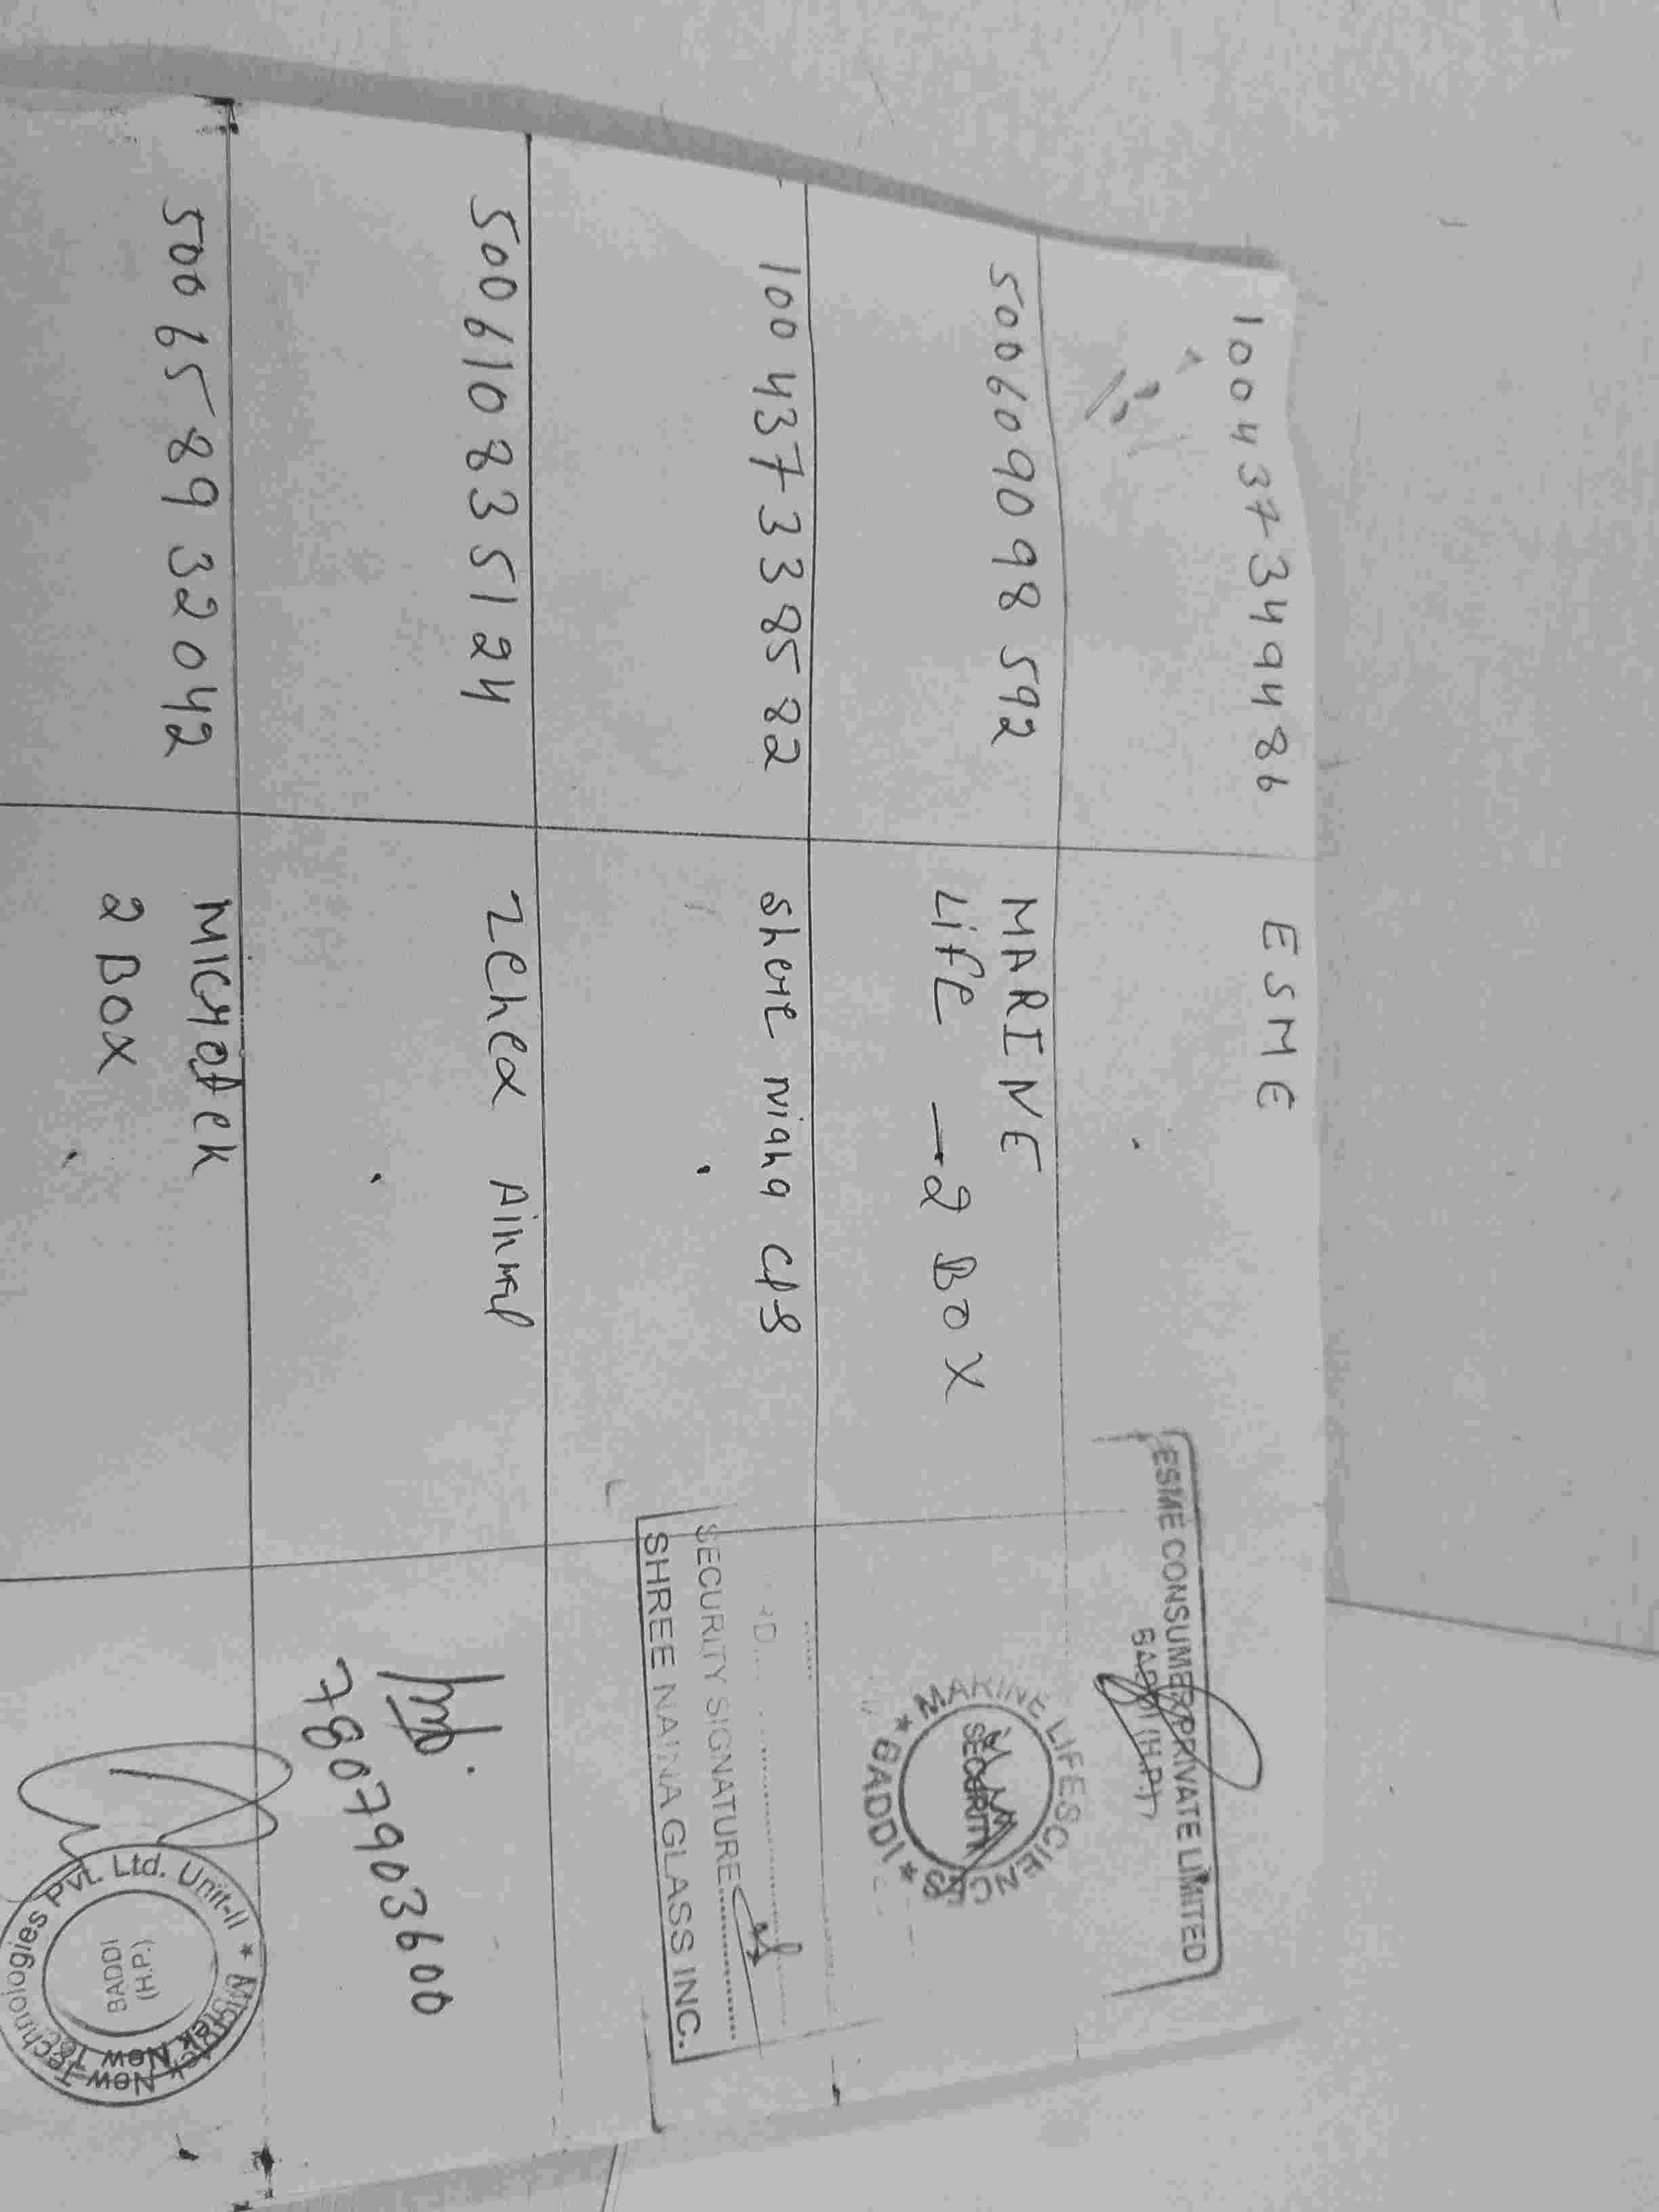 100 437 349486
ESME
ESME CONSUMER PRIVATE LIMITED
BADDI (H.P.)
500609098592
MARINE
LifE - 2 BOX
MARINE LIFESCIENCES
SECURITY
* BADDI *
100 4373385 82
SECURITY SIGNATURE
SHREE NAINA GLASS INC.
500610835124
7807903600
500 65 89 32042
2 BOX
Microtek New Technologies Pvt. Ltd. Unit-II *
BADDI
(H.P.)